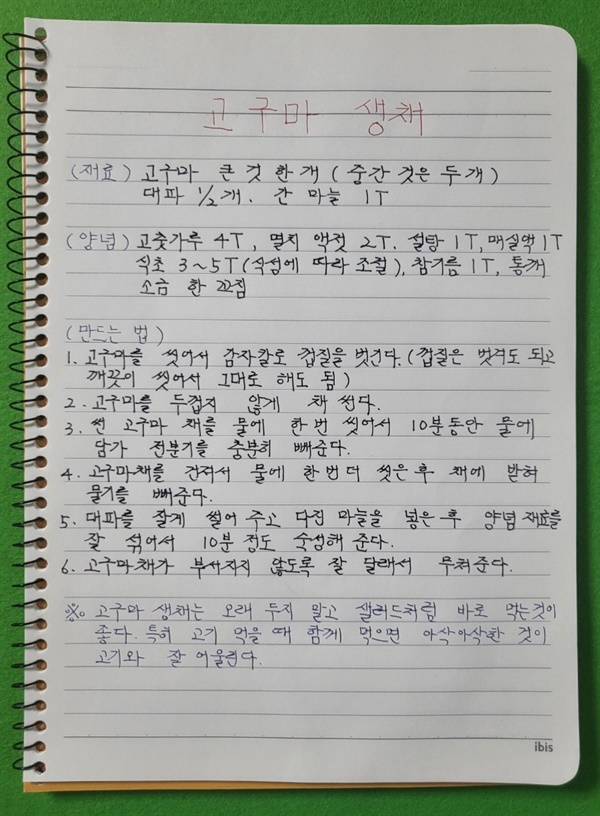 고구마 생채
(재료) 고구마 큰 것 한 개 ( 중간 것은 두 개 )
대파 1/2 개. 간 마늘 1T
(양념) 고춧가루 4T, 멸치 액젓 2T. 설탕 1T, 매실액 1T
식초 3~5T (식성에 따라 조절), 참기름 1T, 통깨
소금 한 꼬집
(만드는 법)
1. 고구마를 씻어서 감자칼로 껍질을 벗긴다. (껍질은 벗겨도 되고
깨끗이 씻어서 그대로 해도 됨)
2. 고구마를 두껍지 않게 채 썬다.
3. 썬 고구마 채를 물에 한 번 씻어서 10분동안 물에
담가 전분기를 충분히 빼준다.
4. 고구마채를 건져서 물에 한번 더 씻은 후 채에 받혀
물기를 빼준다.
5. 대파를 잘게 썰어 주고 다진 마늘을 넣은 후 양념 재료를
잘 섞어서 10분 정도 숙성해 준다.
6. 고구마채가 부서지지 않도록 잘 달래서 무쳐준다.
※ 고구마 생채는 오래 두지 말고 샐러드처럼 바로 먹는것이
좋다. 특히 고기 먹을 때 함께 먹으면 아삭아삭한 것이
고기와 잘 어울린다.
ibis